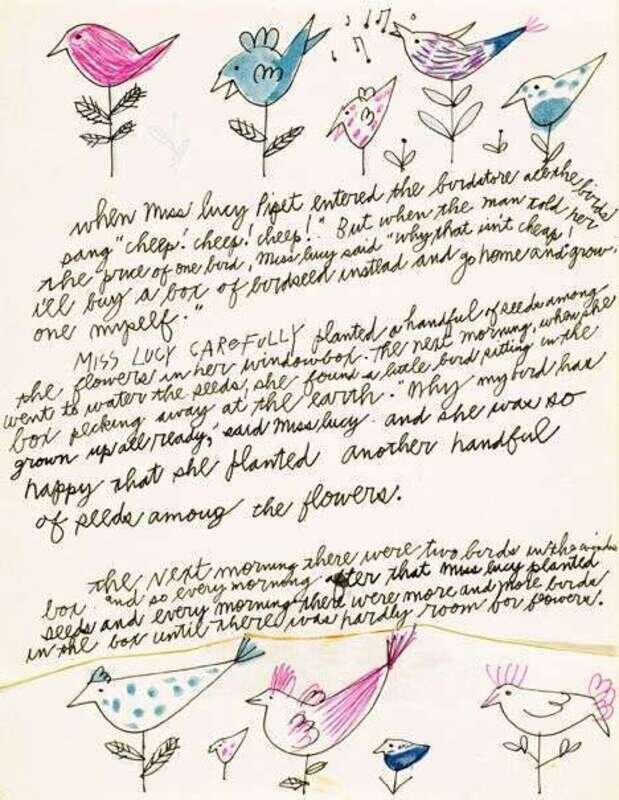 when Miss Lucy Pipet entered the birdstore all the birds
sang "cheep! cheep! cheep!" But when the man told her
the price of one bird, Miss Lucy said "why that isn't cheap!
i'll buy a box of birdseed instead and go home and grow
one myself."
MISS LUCY CAREFULLY planted a handful of seeds among
the flowers in her windowbox. The next morning, when she
went to water the seeds, she found a little bird sitting in the
box pecking away at the earth. "Why my bird has
grown up all ready," said Miss Lucy. and she was so
happy that she planted another handful
of seeds among the flowers.
the next morning there were two birds in the window
box. and so every morning after that Miss Lucy planted
seeds and every morning there were more and more birds
in the box until there was hardly room for flowers.